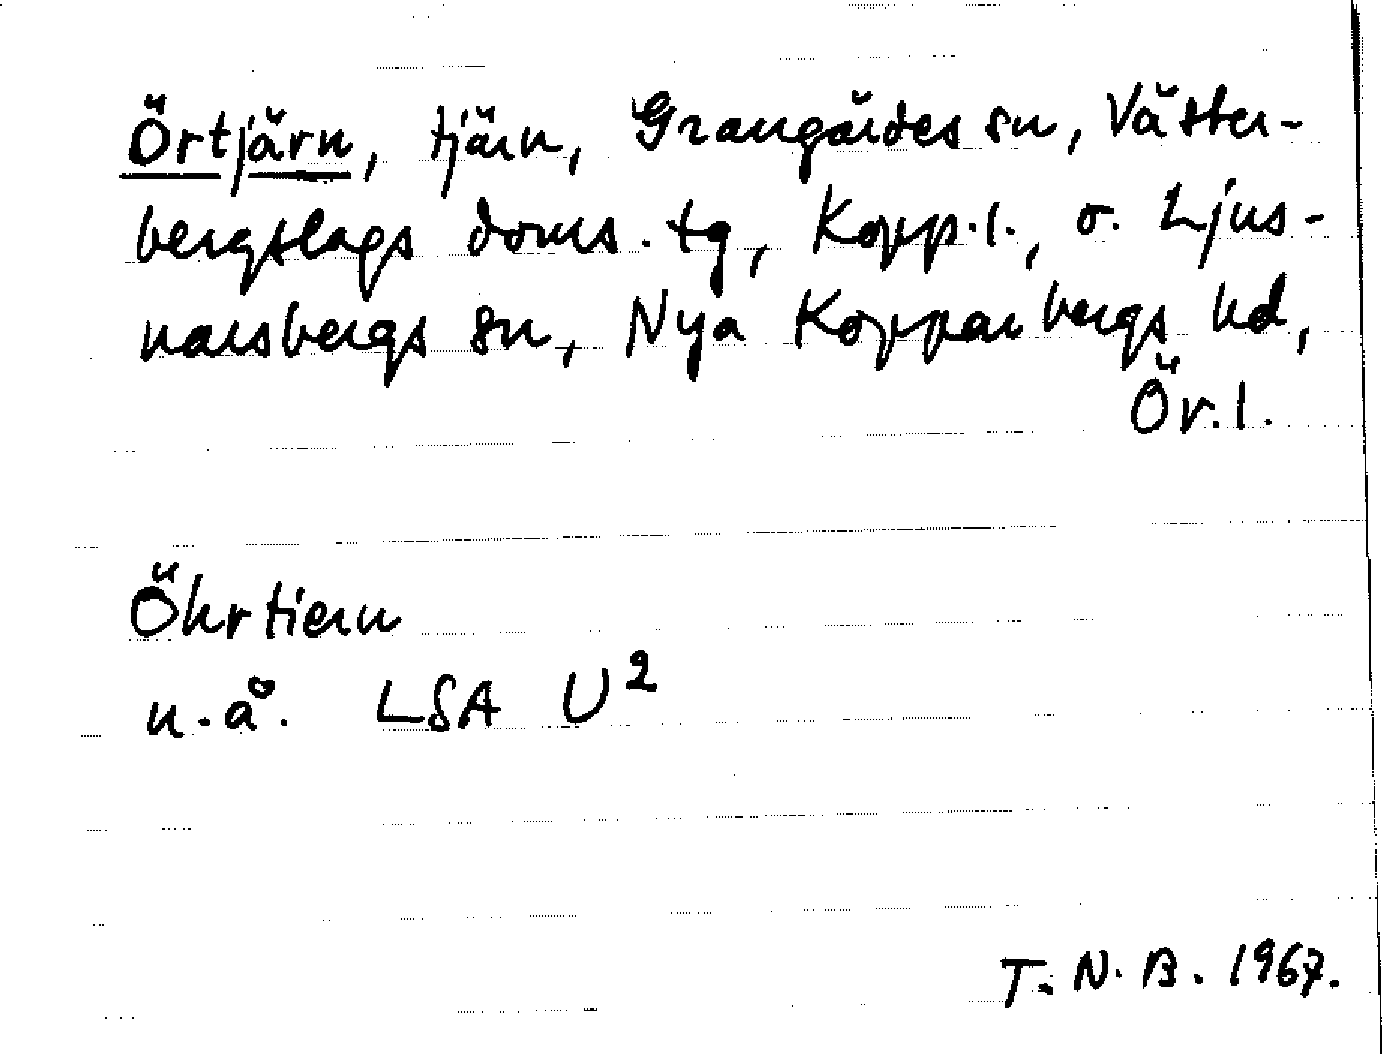 Örtjärn, tjärn, Grangärdes sn, Väster-
bergslags doms. tg, Kopp.l., o. Ljus-
narsbergs sn, Nya Kopparbergs hd,
Ör.l.
Öhrtiern
u.å. LSA U²
T.N.B. 1967.